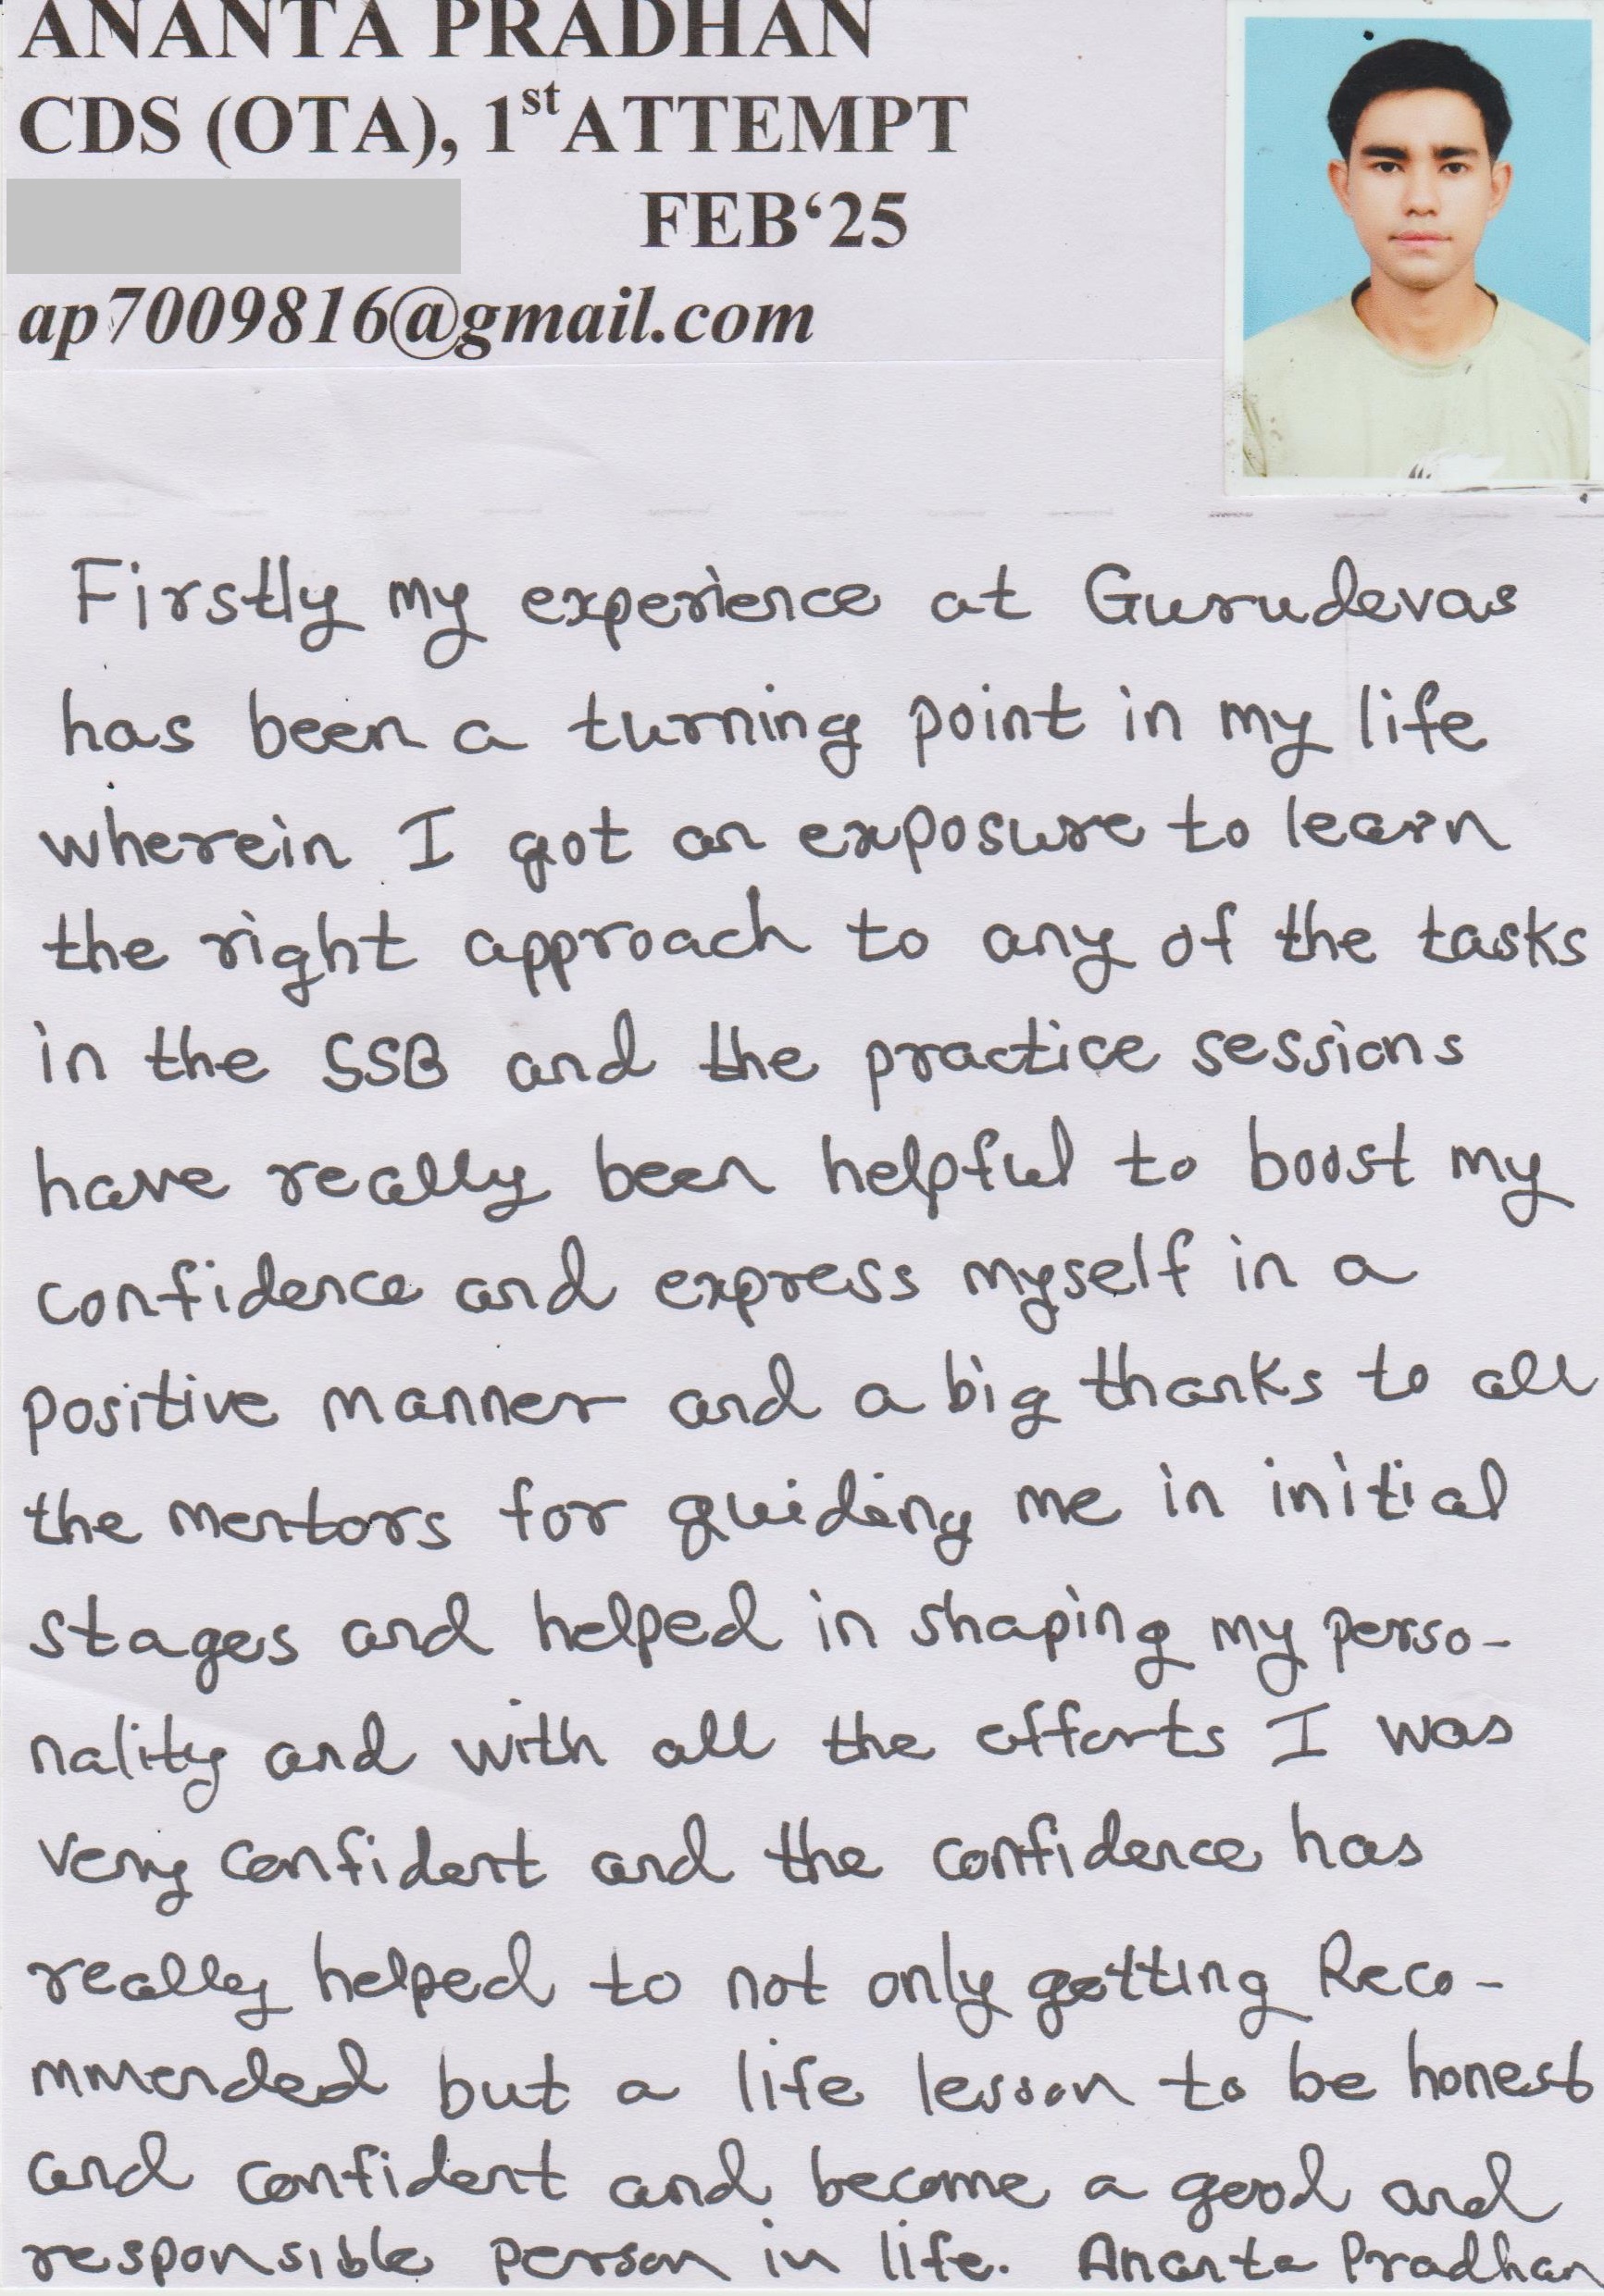 ANANTA PRADHAN
CDS (OTA), 1st ATTEMPT
FEB‘25
ap7009816@gmail.com
Firstly my experience at Gurudevas
has been a turning point in my life
wherein I got an exposure to learn
the right approach to any of the tasks
in the SSB and the practice sessions
have really been helpful to boost my
confidence and express myself in a
positive manner and a big thanks to all
the mentors for guiding me in initial
stages and helped in shaping my perso-
nality and with all the efforts I was
very confident and the confidence has
really helped to not only getting Reco-
mmended but a life lesson to be honest
and confident and become a good and
responsible person in life. Ananta Pradhan